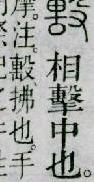 毄相擊中也。
摩。注。毄拂也。手